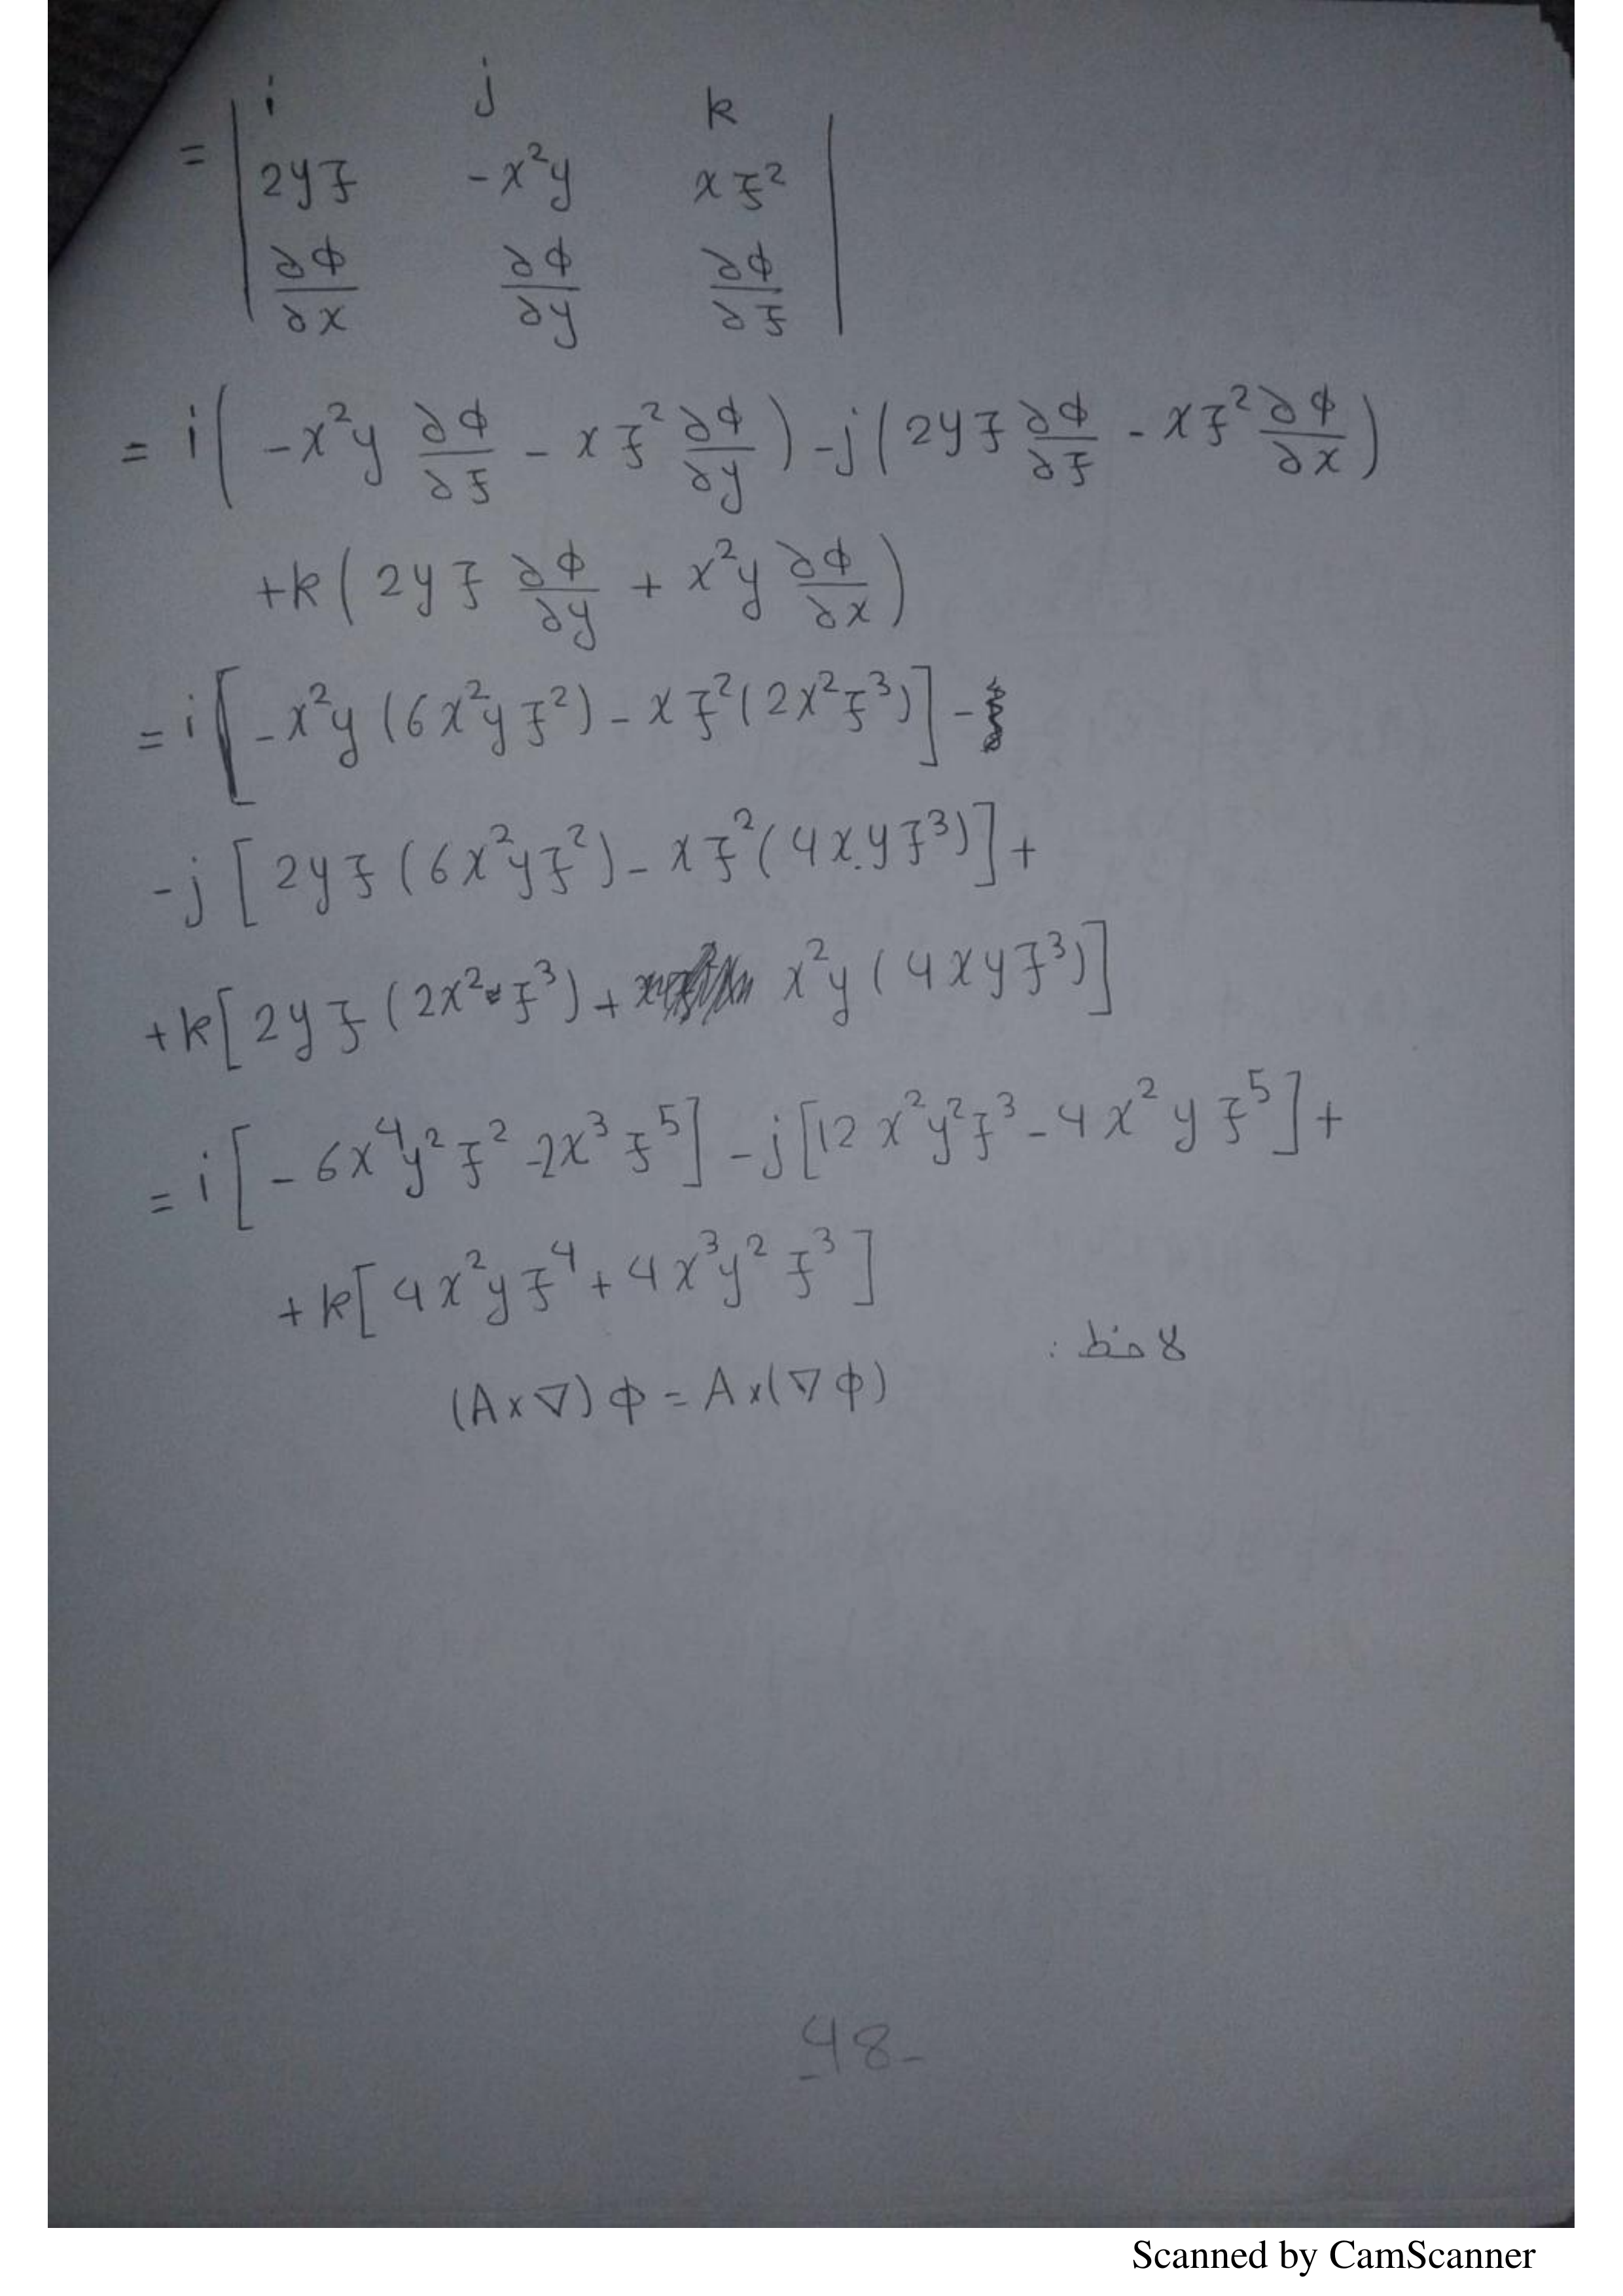 i j k
= | 2yz -x²y xz² |
∂φ/∂x ∂φ/∂y ∂φ/∂z
= i( -x²y ∂φ/∂z - xz² ∂φ/∂y ) -j( 2yz ∂φ/∂z - xz² ∂φ/∂x )
+k( 2yz ∂φ/∂y + x²y ∂φ/∂x )
= i[ -x²y (6x²yz²) - xz²(2x²z³)] -
-j [ 2yz (6x²yz²) - xz²(4xyz³)] +
+k[ 2yz (2x²z³) + x²y (4xyz³)]
= i[ - 6x⁴y²z² -2x³z⁵] -j[12x²y²z³ - 4x²yz⁵] +
+k[ 4x²yz⁴ + 4x³y²z³ ]
لاحظ :
(A×∇)φ = A×(∇φ)
-48-
Scanned by CamScanner